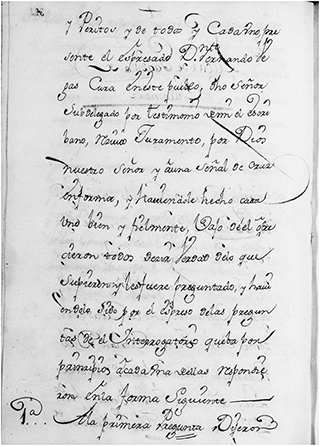 y Peritos y de todos y Cada Uno, pre
sente el espresado Dn. Fernando
gas Cura eneste pueblo, dho Señor
Subdelegado por testimonio emi el escri
bano, Juramento, por Dios
nuestro Señor y auna señal de Cruz
informa, y haviendole hecho cada
Uno bien y fielmente, Vajo deel ofre
cieron todos decir Verdad delo que
supieren y lesfuere preguntado, y havi
endolo Sido por el espreso delas pregun
tas de el Interrogatorio queba por
principio, acada una dellas respondie
ron enla forma Siguiente
1ª Ala primera Pregunta Dijeron